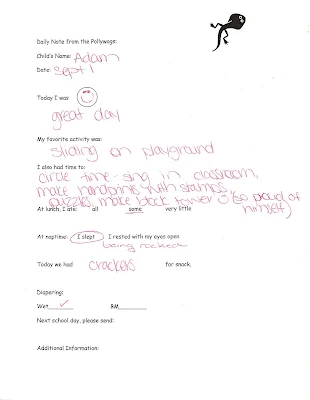 Daily Note from the Pollywogs:
Child's Name: Adam
Date: Sept 1
Today I was
great day
My favorite activity was:
sliding on playground
I also had time to:
circle time - sing in classroom,
make handprints with stamps
puzzles, make block tower (so proud of himself)
At lunch, I ate: all some very little
At naptime: I slept I rested with my eyes open
being rocked
Today we had crackers for snack.
Diapering:
Wet ✓ BM
Next school day, please send:
Additional Information: